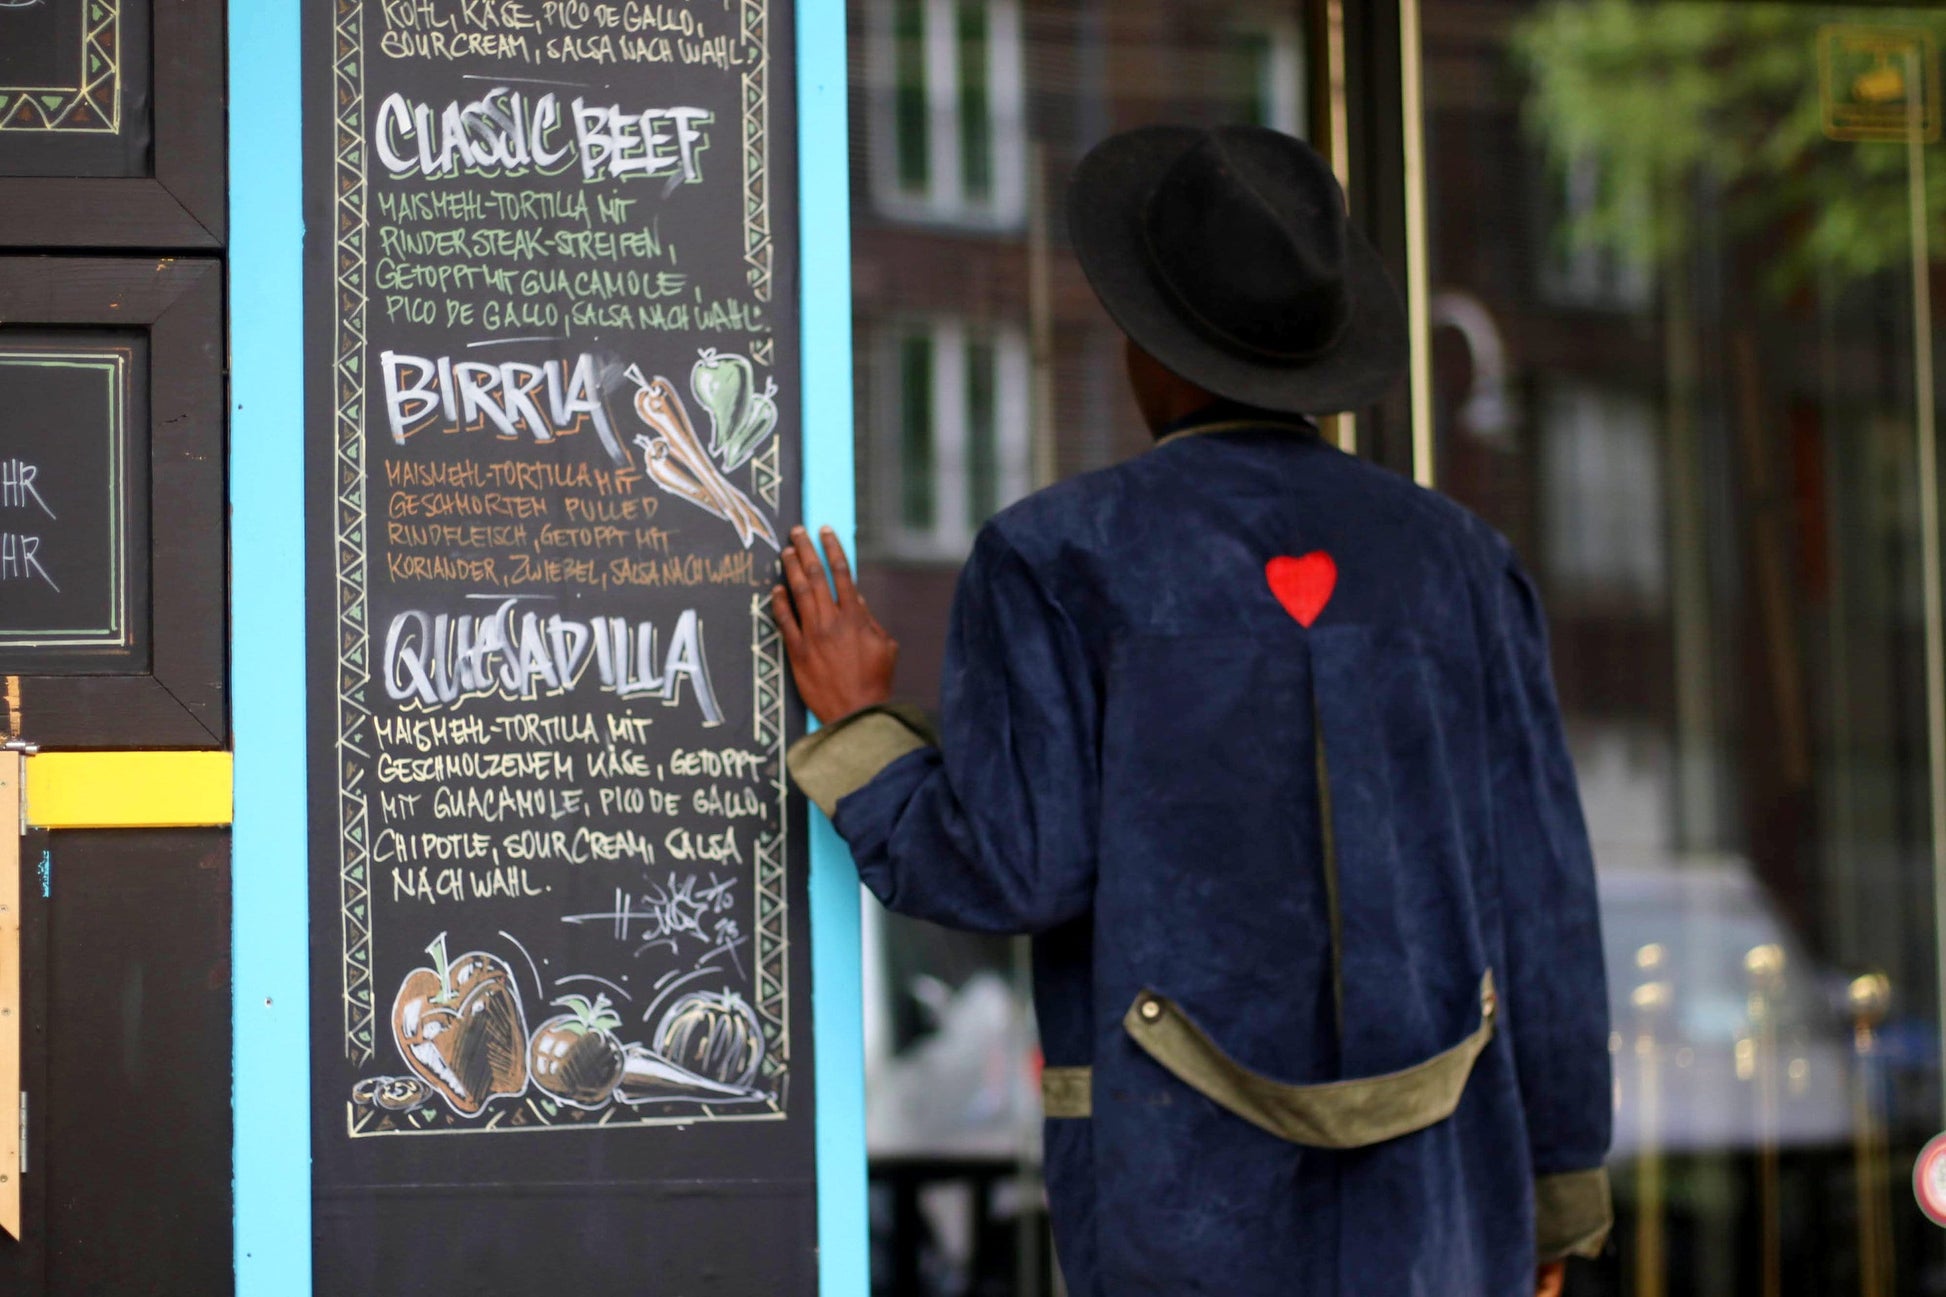 KOHL, KÄSE, PICO DE GALLO,
SOUR CREAM, SALSA NACH WAHL.
CLASSIC BEEF
MAISMEHL-TORTILLA MIT
RINDERSTEAK-STREIFEN,
GETOPPT MIT GUACAMOLE,
PICO DE GALLO, SALSA NACH WAHL.
BIRRIA
MAISMEHL-TORTILLA MIT
GESCHMORTEM PULLED
RINDFLEISCH, GETOPPT MIT
KORIANDER, ZWIEBEL, SALSA NACH WAHL.
QUESADILLA
MAISMEHL-TORTILLA MIT
GESCHMOLZENEM KÄSE, GETOPPT
MIT GUACAMOLE, PICO DE GALLO,
CHIPOTLE, SOUR CREAM, SALSA
NACH WAHL.
HR
HR